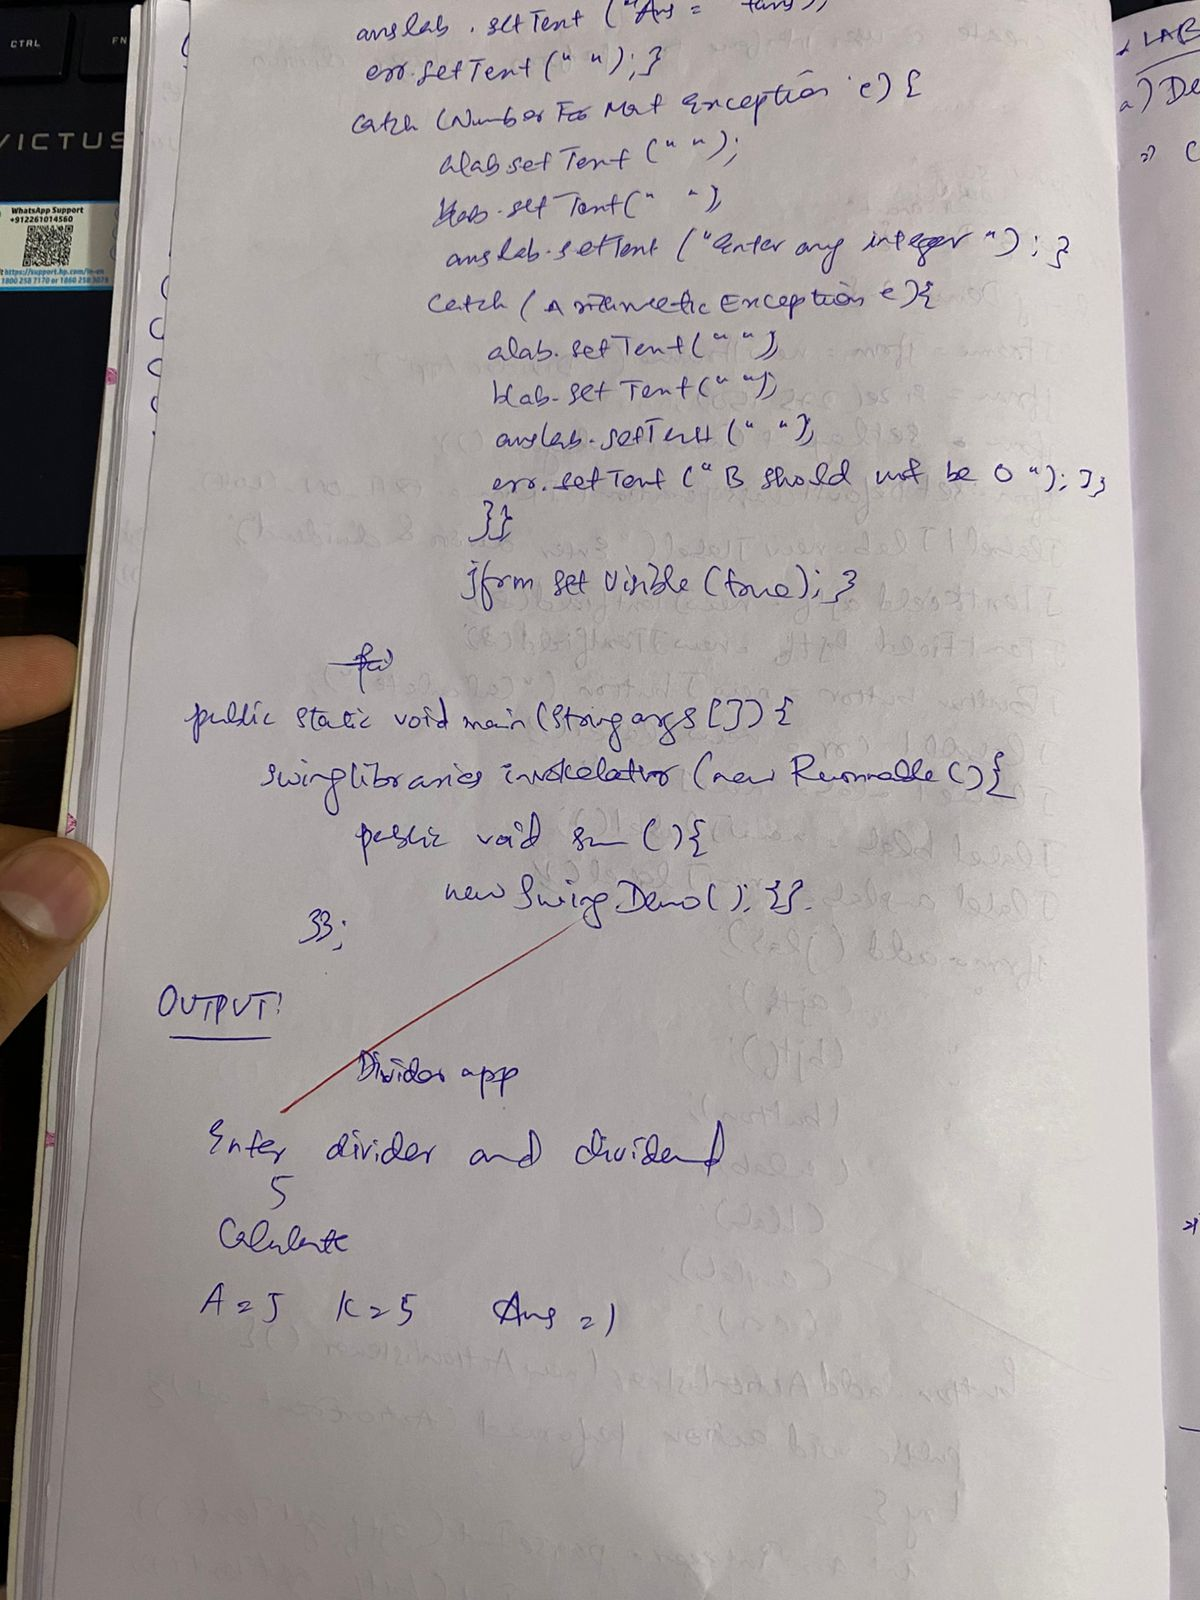 CTRL
FN
VICTUS
WhatsApp Support
+912261014560
https://support.hp.com/in-en
1800 258 7170 or 1860 258
anslab . setText ("Ans = "+ans);
err.setText (" "); }
catch (Number Format Exception e) {
alab setText (" ");
blab . setText (" ");
anslab.setText ("Enter any integer "); }
catch (Arithmetic Exception e){
alab. setText (" ");
blab. set Text (" ");
anslab. setText (" ");
err. setText (" B should not be 0 "); }}
}};
jfrm set visible (true); }
public static void main (String args []) {
swinglibraries invokelator (new Runnable () {
public void (){
new Swing Demo(); }}.
}};
OUTPUT:
Divider app
Enter divider and dividend
5
Calculate
A = 5 K = 5 Ans = 1
LAB
a) De